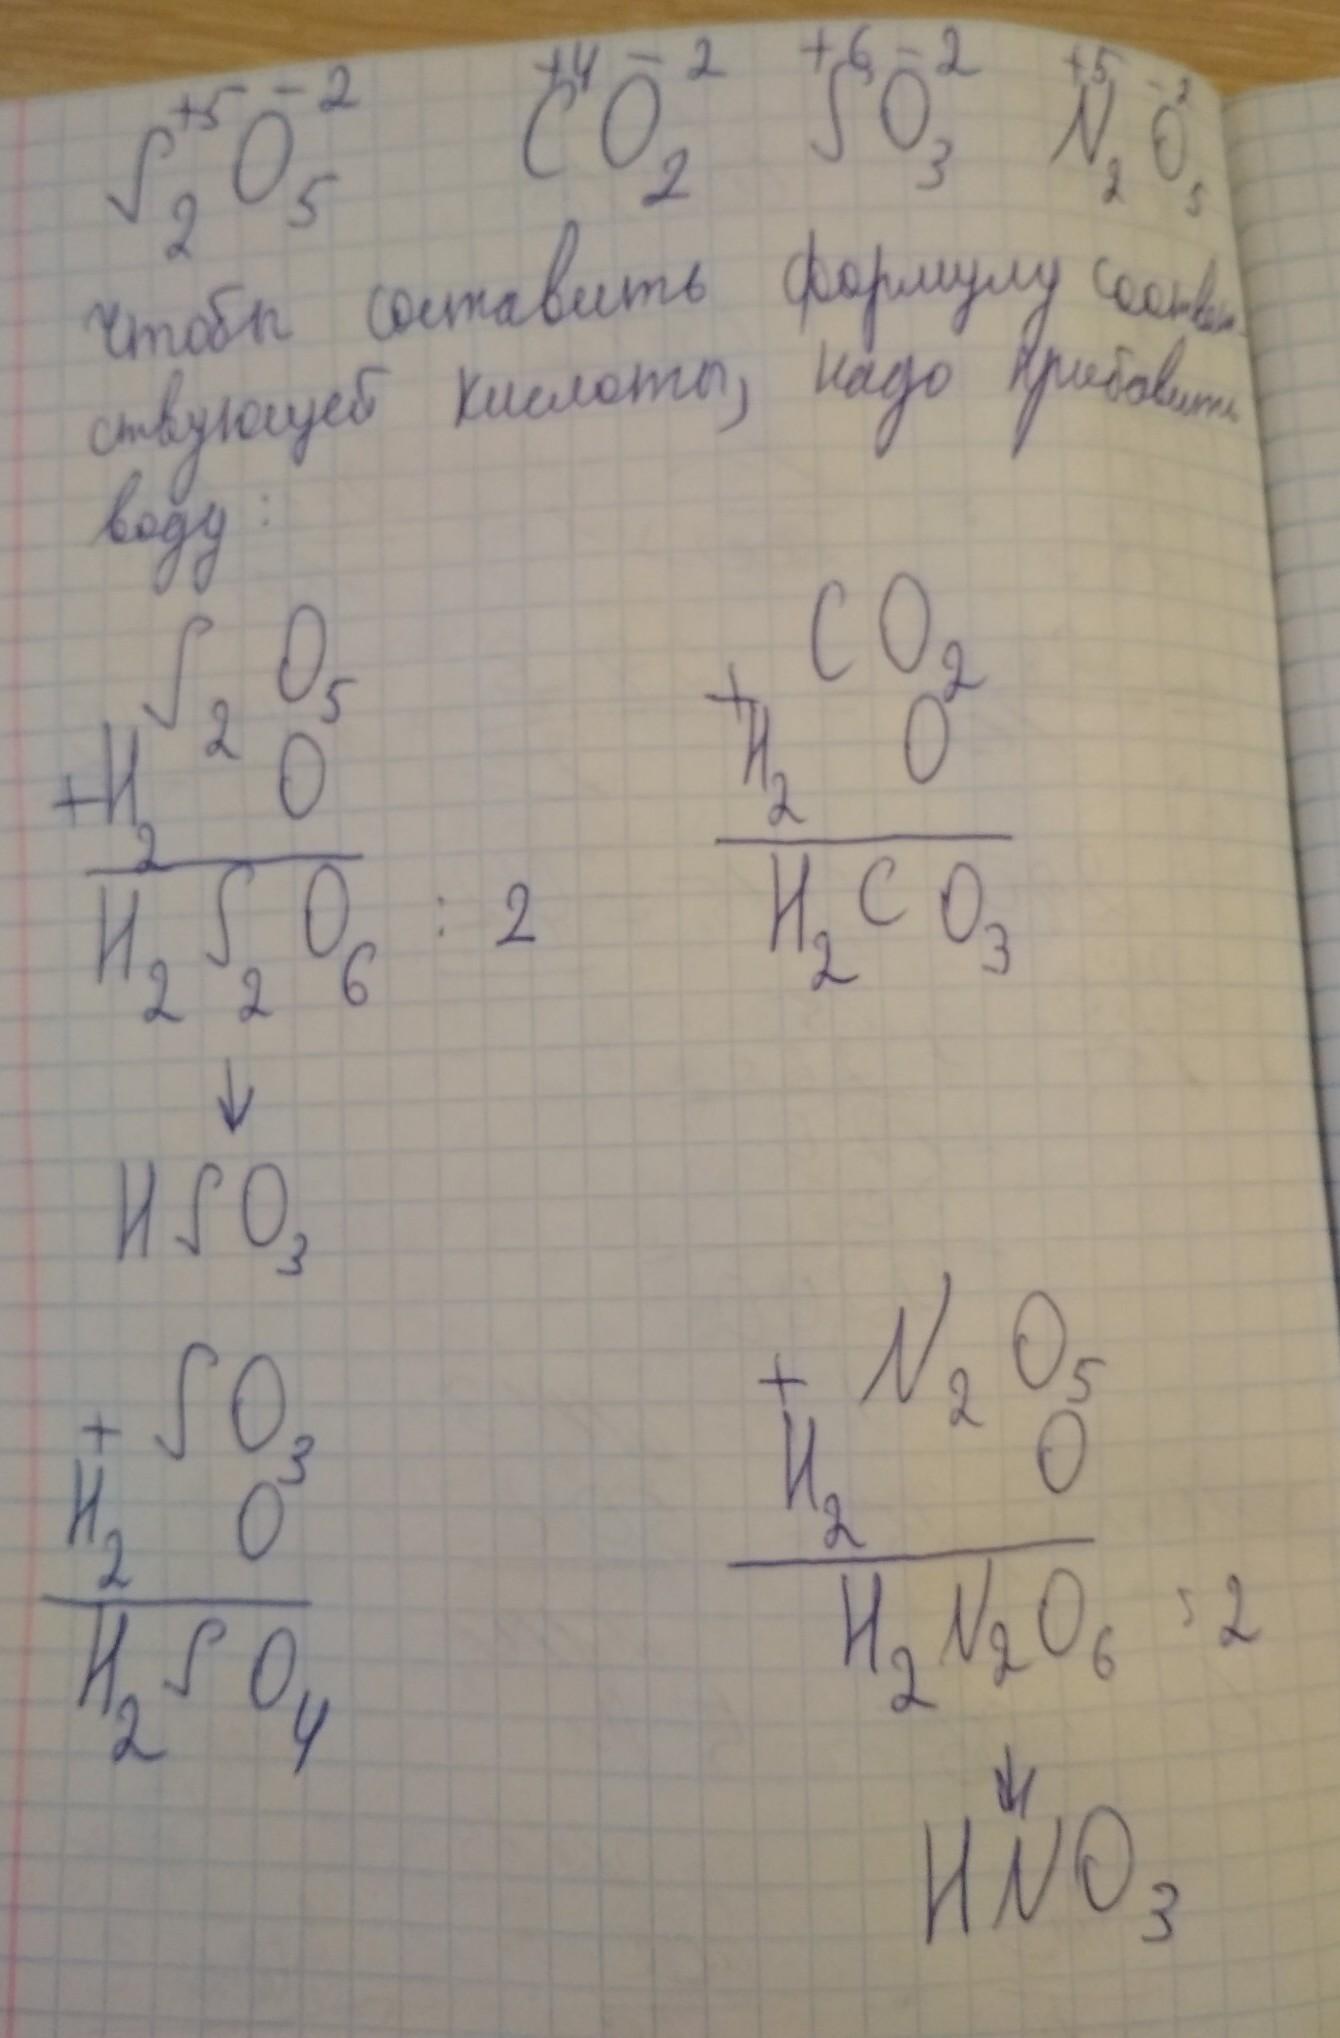 S₂⁺⁵O₅⁻² C⁺⁴O₂⁻² S⁺⁶O₃⁻² N₂⁺⁵O₅⁻²
Чтобы составить формулу соответ-
ствующей кислоты, надо прибавить
воду:
S₂ O₅
+H₂ O
H₂ S₂ O₆ : 2
↓
HSO₃
C O₂
+
H₂ O
H₂ C O₃
+ S O₃
H₂ O
H₂ S O₄
+ N₂ O₅
H₂ O
H₂ N₂ O₆ : 2
↓
HNO₃